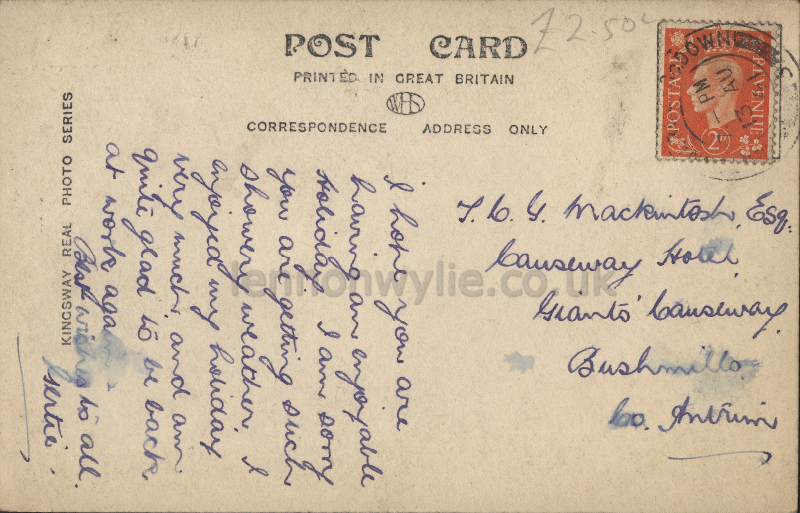 £2.50
POST CARD
PRINTED IN GREAT BRITAIN
WHS
CORRESPONDENCE ADDRESS ONLY
KINGSWAY REAL PHOTO SERIES
I hope you are
having an enjoyable
Holiday. I am sorry
you are getting such
showery weather. I
enjoyed my holiday
very much, and am
quite glad to be back
at work again.
Best wishes to all.
Gertie.
T. C. G. Mackintosh, Esq.
Causeway Hotel,
Giants' Causeway,
Bushmills.
Co. Antrim
POSTAGE REVENUE
2D
PM
13 AU
lennonwylie.co.uk